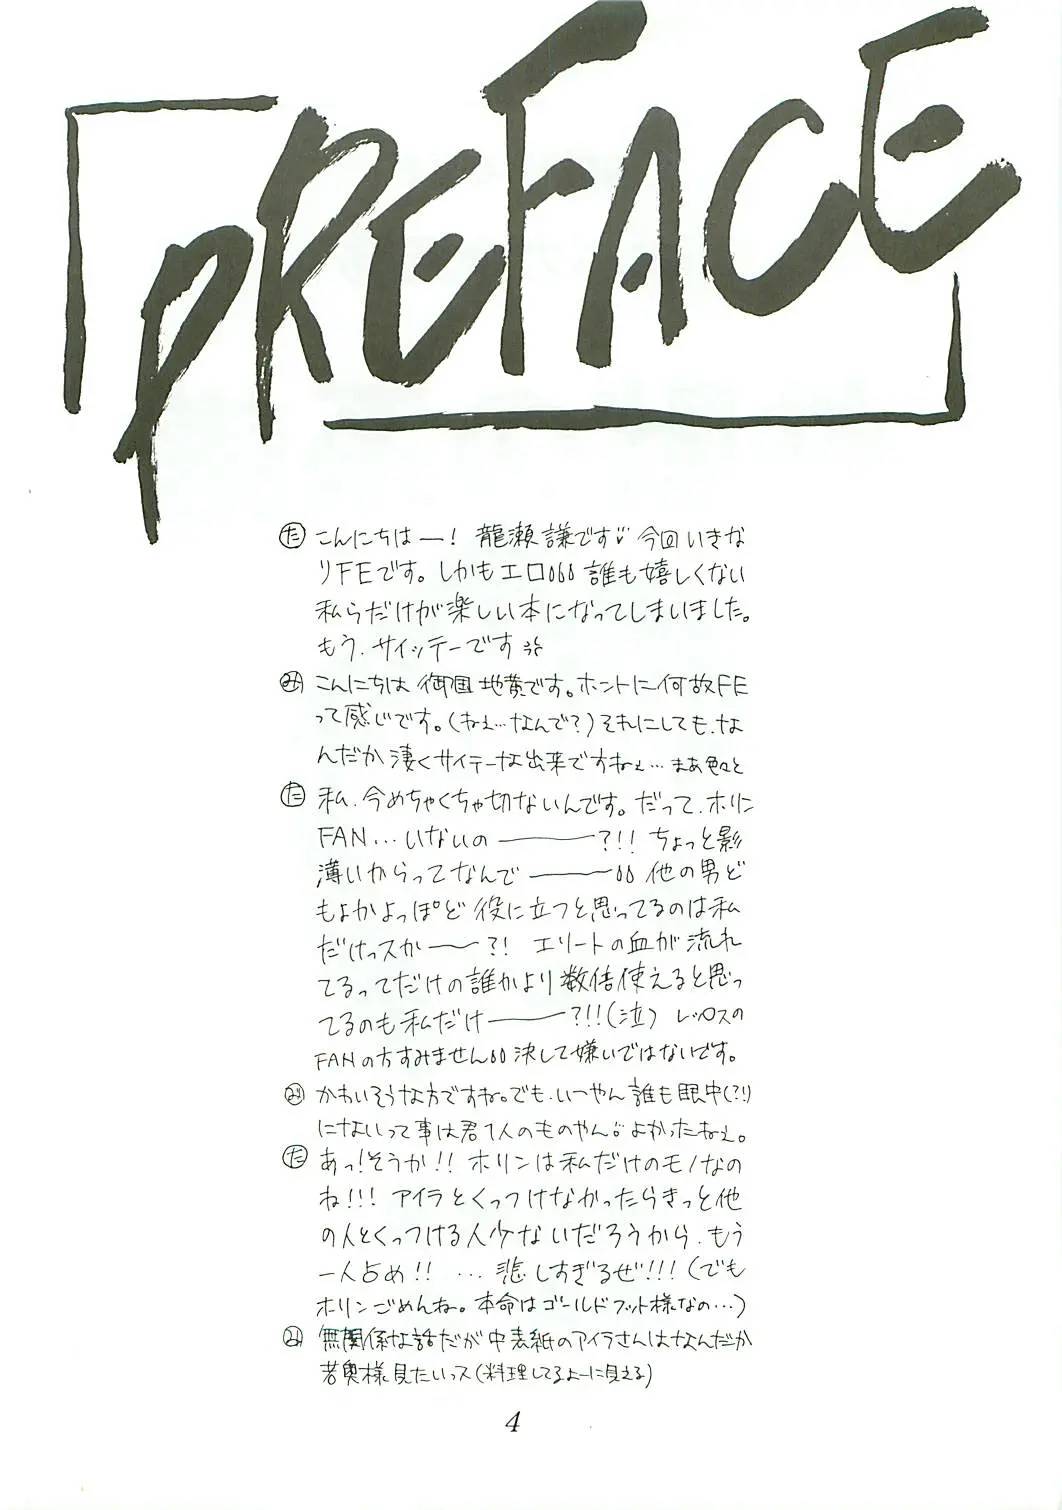 PREFACE
た こんにちはー! 龍瀬謙です♡ 今回いきな
りFEです。しかもエロ。。。誰も嬉しくない
私らだけが楽しい本になってしまいました。
もう、サイッテーです
み こんにちは 御国地黄です。ホントに何故FE
って感じです。(ねぇ…なんで?)それにしても、な
んだか凄くサイテーな出来ですねぇ…まあ色々と
た 私、今めちゃくちゃ切ないんです。だって、ホリン
FAN…いないの―――?!! ちょっと影
薄いからってなんで―――。。他の男ど
もよかよっぽど役に立つと思ってるのは私
だけっスか――?! エリートの血が流れ
てるってだけの誰かより数倍使えると思っ
てるのも私だけ―――?!!(泣) レックスの
FANの方すみません。。決して嫌いではないです。
み かわいそうな方ですね。でも、いーやん誰も眼中(?!)
にないって事は君1人のものやん。よかったねぇ。
た あっ!そうか!! ホリンは私だけのモノなの
ね!!! アイラとくっつけなかったらきっと他
の人とくっつける人少ないだろうから、もう
一人占め!! …悲しすぎるぜ!!!(でも
ホリンごめんね。本命はゴールドフット様なの…)
み 無関係な話だが中表紙のアイラさんはなんだか
若奥様見たいっス(料理してるよーに見える)
4